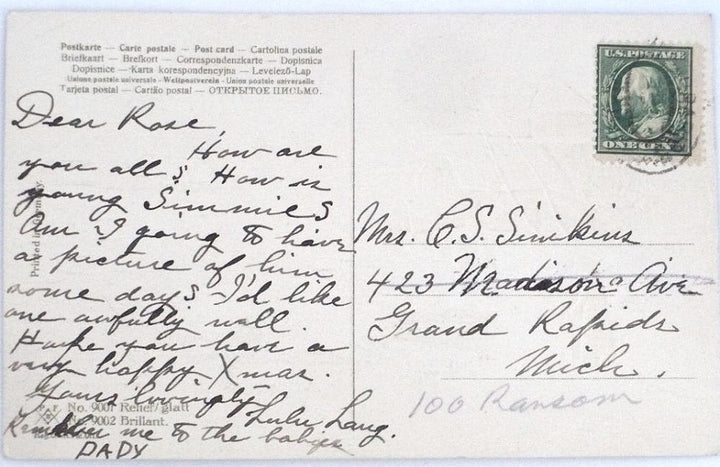 Postkarte — Carte postale — Post card — Cartolina postale
Briefkaart — Brefkort — Correspondenzkarte — Dopisnica
Dopisnice — Karta korespondencyjna — Levelező-Lap
Union postale universelle - Weltpostverein - Union postale universelle
Tarjeta postal — Cartão postal — ОТКРЫТОЕ ПИСЬМО.
U.S. POSTAGE
ONE CENT
Dear Rose,
How are
you all? How is
young Simmie?
Am I going to have
a picture of him
some day? I'd like
one awfully well.
Hope you have a
very happy Xmas.
Yours lovingly
Lulu Lang.
Remember me to the babies
DADY
Printed in Germany
No. 9001 Relief/glatt
No. 9002 Brillant.
Mrs. C. S. Simkins
423 Madison Ave
Grand Rapids
Mich.
100 Ransom